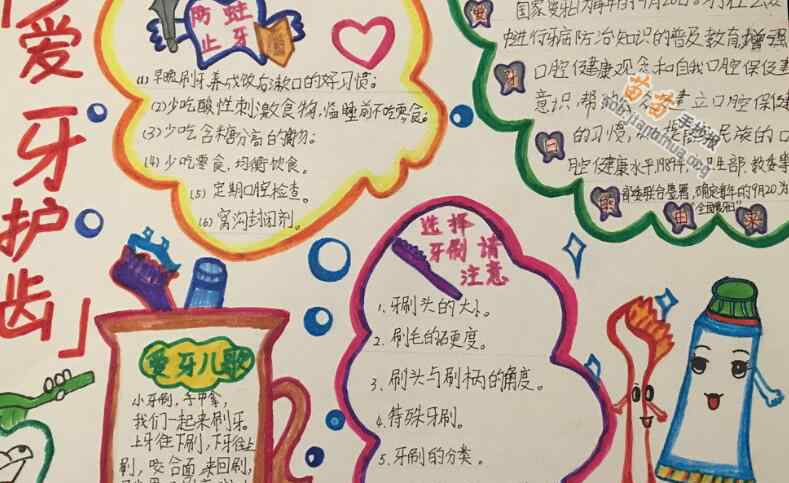 爱牙护齿」
防蛀
止牙
(1) 早晚刷牙养成饭后漱口的好习惯;
(2) 少吃酸性刺激食物,临睡前不吃零食;
(3) 少吃含糖分高的食物。
(4) 少吃零食,均衡饮食。
(5) 定期口腔检查。
(6) 窝沟封闭剂。
爱牙日的由来
国家
进行牙病防治知识的普及教育,增强
口腔健康观念和自我口腔保健
意识,帮 建立口腔保健
的习惯, 提高 民族的口
腔健康水平,1989年,卫生部,教委
部委联合签署,确定每年的9月20为
"全国爱牙日"
苗苗手抄报
选择
牙刷请
注意
1、牙刷头的大小。
2、刷毛的硬度。
3、刷头与刷柄的角度。
4、特殊牙刷。
5、牙刷的分类。
爱牙儿歌
小牙刷,手中拿,
我们一起来刷牙。
上牙往下刷,下牙往上
刷,咬合面来回刷,